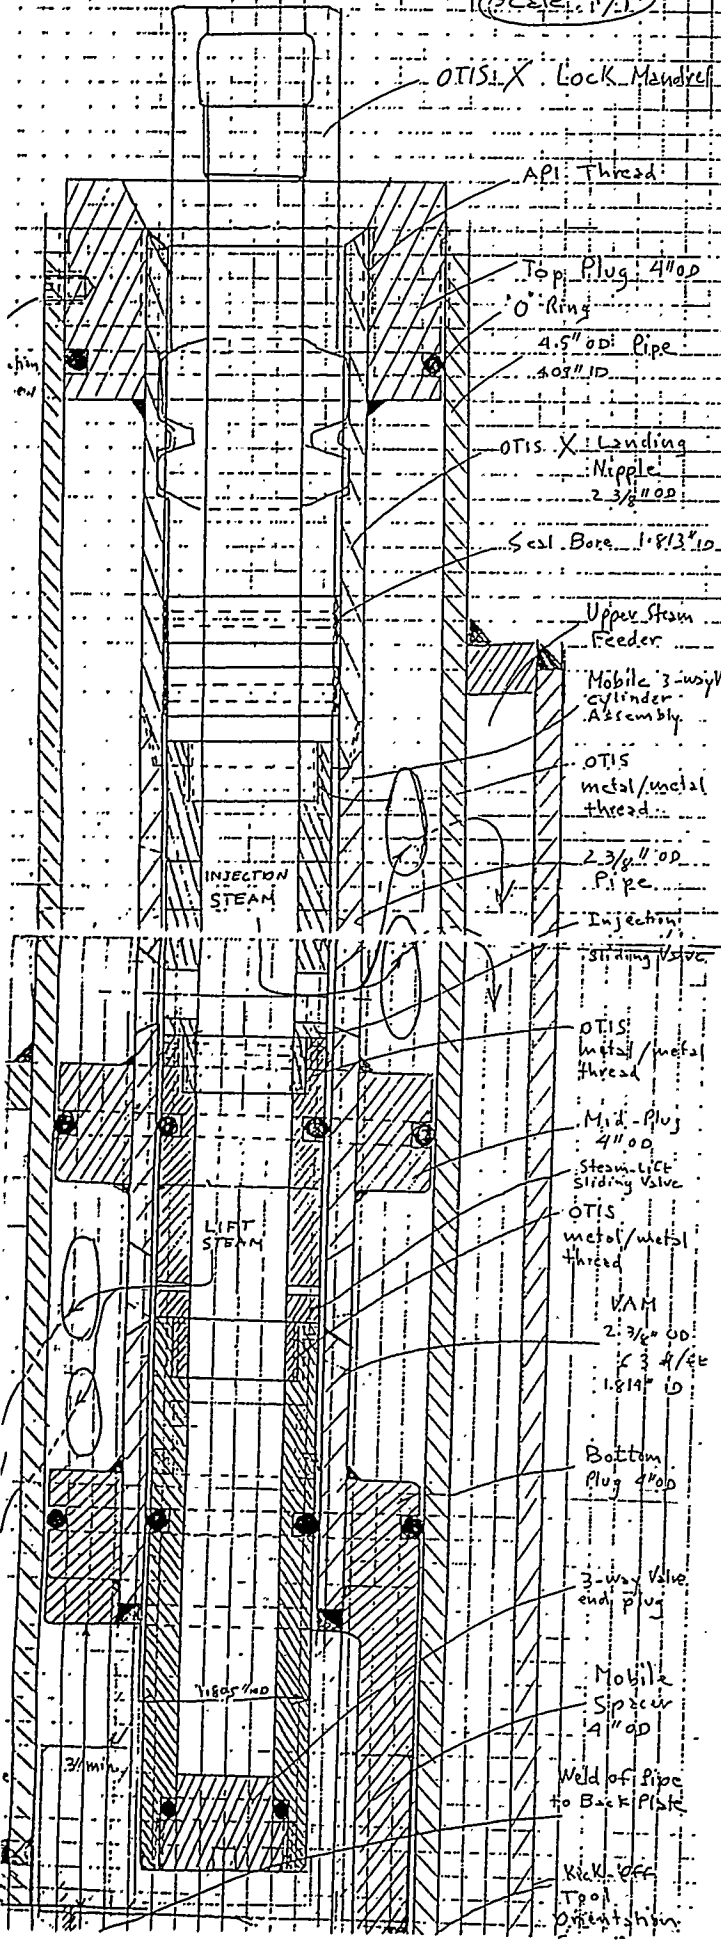 Scale: 1/1
OTIS X Lock Mandrel
API Thread
Top Plug 4"OD
"O" Ring
4.5" OD Pipe
4.09" ID
OTIS X Landing
Nipple
2 3/8" OD
Seal Bore 1.813" ID
Upper Steam
Feeder
Mobile 3-way
cylinder
Assembly
OTIS
metal/metal
thread
INJECTION
STEAM
2 3/8" OD
Pipe
Injection
sliding Valve
OTIS
metal/metal
thread
Mid-Plug
4" OD
Steam-Lift
Sliding Valve
LIFT
STEAM
OTIS
metal/metal
thread
VAM
2 3/8" OD
6.3 #/ft
1.814" ID
Bottom
Plug 4"OD
3-way Valve
end plug
1.805" OD
Mobile
Spacer
4" OD
3" min
Weld of Pipe
to Back Plate
Kick-off
Tool
Orientation